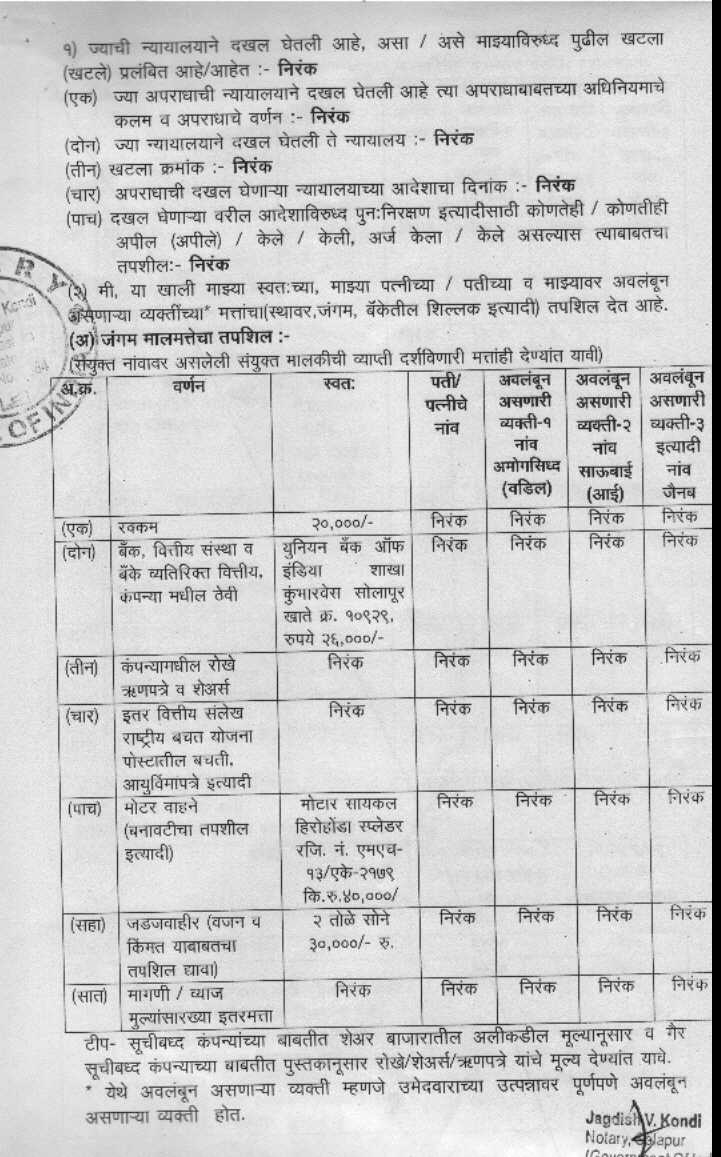 १) ज्याची न्यायालयाने दखल घेतली आहे, असा / असे माझ्याविरुध्द पुढील खटला
(खटले) प्रलंबित आहे/आहेत :- निरंक
(एक) ज्या अपराधाची न्यायालयाने दखल घेतली आहे त्या अपराधाबाबतच्या अधिनियमाचे
कलम व अपराधाचे वर्णन :- निरंक
(दोन) ज्या न्यायालयाने दखल घेतली ते न्यायालय :- निरंक
(तीन) खटला क्रमांक :- निरंक
(चार) अपराधाची दखल घेणाऱ्या न्यायालयाच्या आदेशाचा दिनांक :- निरंक
(पाच) दखल घेणाऱ्या वरील आदेशाविरुध्द पुन:निरक्षण इत्यादीसाठी कोणतेही / कोणतीही
अपील (अपीले) / केले / केली, अर्ज केला / केले असल्यास त्याबाबतचा
तपशील:- निरंक
(२) मी, या खाली माझ्या स्वत:च्या, माझ्या पत्नीच्या / पतीच्या व माझ्यावर अवलंबून
असणाऱ्या व्यक्तींच्या* मत्तांचा(स्थावर,जंगम, बॅकेतील शिल्लक इत्यादी) तपशिल देत आहे.
(अ) जंगम मालमत्तेचा तपशिल :-
(संयुक्त नांवावर असलेली संयुक्त मालकीची व्याप्ती दर्शविणारी मत्तांही देण्यांत यावी)
अ.क्र. वर्णन स्वत: पती/ अवलंबून अवलंबून अवलंबून
पत्नीचे असणारी असणारी असणारी
नांव व्यक्ती-१ व्यक्ती-२ व्यक्ती-३
नांव नांव इत्यादी
अमोगसिध्द साऊबाई नांव
(वडिल) (आई) जैनब
(एक) रक्कम २०,०००/- निरंक निरंक निरंक निरंक
(दोन) बँक, वित्तीय संस्था व युनियन बँक ऑफ निरंक निरंक निरंक निरंक
बँके व्यतिरिक्त वित्तीय, इंडिया शाखा
कंपन्या मधील ठेवी कुंभारवेस सोलापूर
खाते क्र. १०९२९,
रुपये २६,०००/-
(तीन) कंपन्यामधील रोखे निरंक निरंक निरंक निरंक निरंक
ऋणपत्रे व शेअर्स
(चार) इतर वित्तीय संलेख निरंक निरंक निरंक निरंक निरंक
राष्ट्रीय बचत योजना
पोस्टातील बचती,
आयुर्विमापत्रे इत्यादी
(पाच) मोटर वाहने मोटार सायकल निरंक निरंक निरंक निरंक
(बनावटीचा तपशील हिरोहोंडा स्प्लेडर
इत्यादी) रजि. नं. एमएच-
१३/एके-२१७९
कि.रु.४०,०००/
(सहा) जडजवाहीर (वजन व २ तोळे सोने निरंक निरंक निरंक निरंक
किंमत याबाबतचा ३०,०००/- रु.
तपशिल द्यावा)
(सात) मागणी / व्याज निरंक निरंक निरंक निरंक निरंक
मुल्यांसारख्या इतरमत्ता
टीप- सूचीबध्द कंपन्यांच्या बाबतीत शेअर बाजारातील अलीकडील मूल्यानुसार व गैर
सूचीबध्द कंपन्याच्या बाबतीत पुस्तकानुसार रोखे/शेअर्स/ऋणपत्रे यांचे मूल्य देण्यांत यावे.
* येथे अवलंबून असणाऱ्या व्यक्ती म्हणजे उमेदवाराच्या उत्पन्नावर पूर्णपणे अवलंबून
असणाऱ्या व्यक्ती होत.
Jagdish V. Kondi
Notary, Solapur